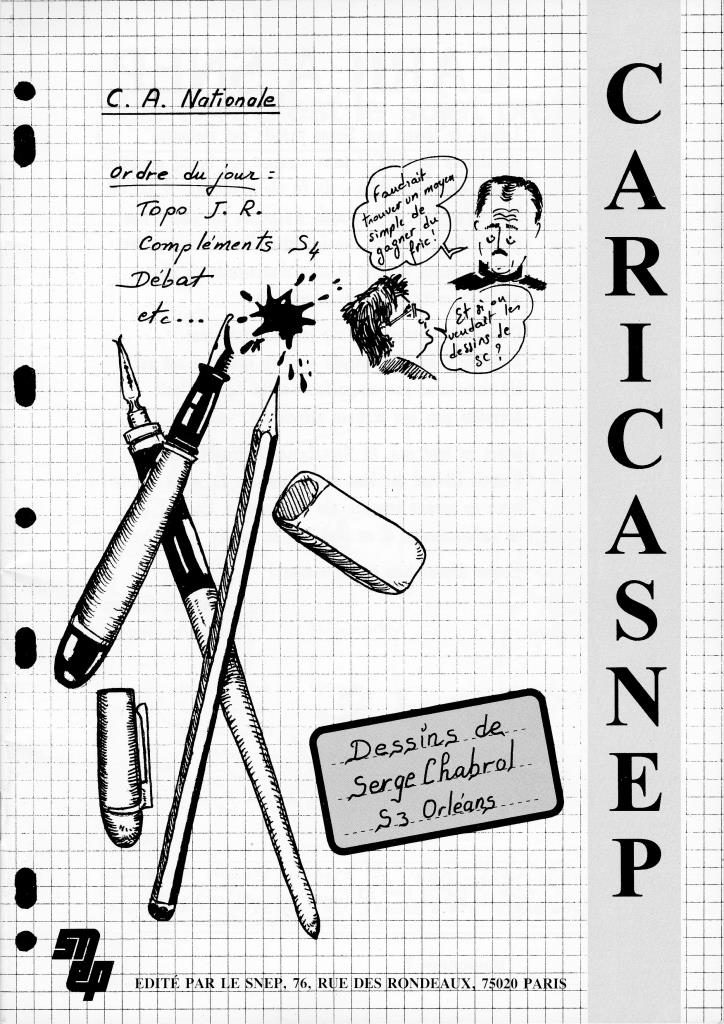 C. A. Nationale
Ordre du jour :
Topo J. R.
Compléments S4
Débat
etc...
Faudrait
trouver un moyen
simple de
gagner du
fric !
Et si on
vendait les
dessins de
SC ?
CARICASNEP
Dessins de
Serge Chabrol
S3 Orléans
snep
EDITÉ PAR LE SNEP, 76, RUE DES RONDEAUX, 75020 PARIS